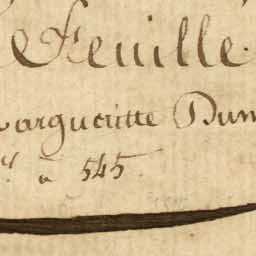 Feuille.
Margueritte Dum
à 545.